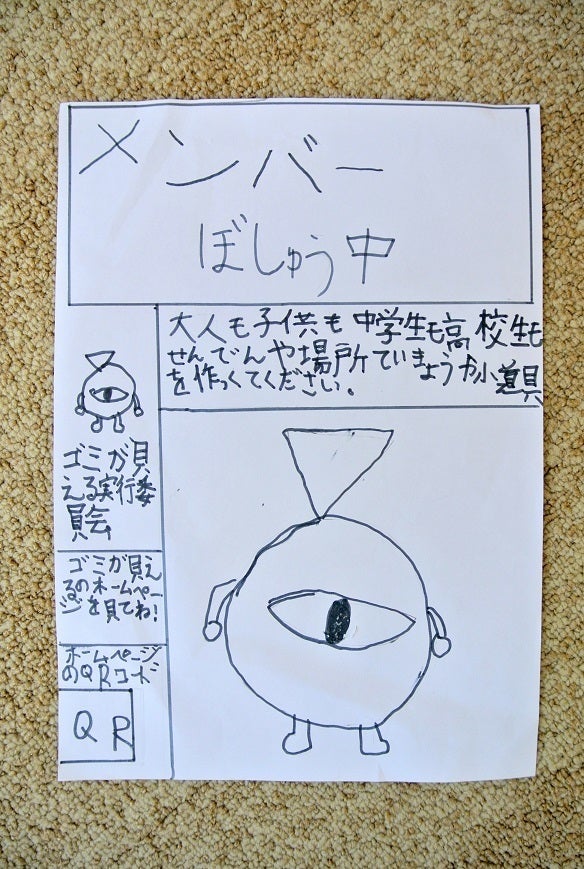 メンバー
ぼしゅう中
大人も子供も中学生も高校生も
せんでんや場所ていきょうか小道具
を作ってください。
ゴミが貝
える実行委
員会
ゴミが貝え
るのホームペー
ジを貝てね!
ホームページ
のQRコード
QR